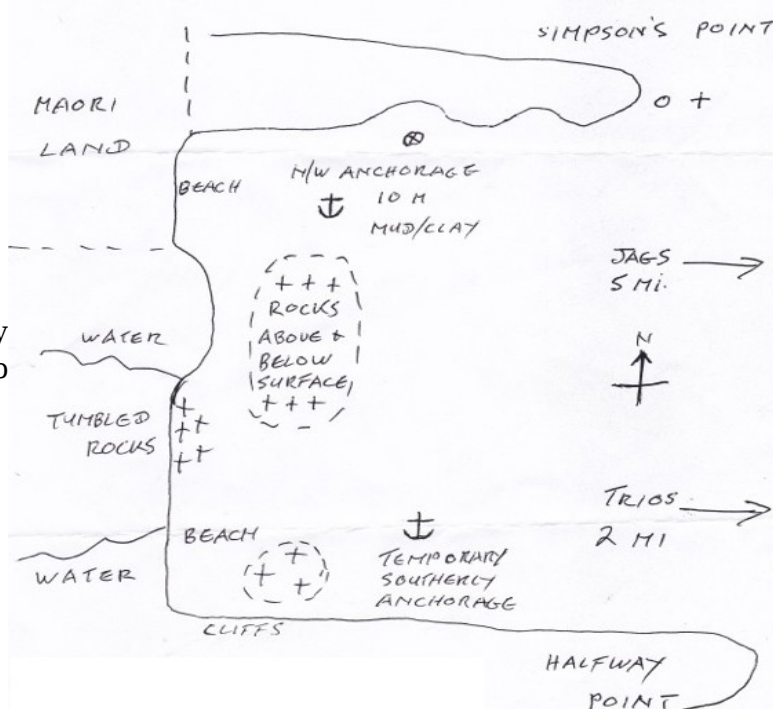 SIMPSON'S POINT
MAORI
LAND
BEACH
N/W ANCHORAGE
10 M
MUD/CLAY
JAGS
5 MI.
ROCKS
ABOVE &
BELOW
SURFACE
N
WATER
y
o
TUMBLED
ROCKS
TRIOS
2 MI
BEACH
WATER
TEMPORARY
SOUTHERLY
ANCHORAGE
CLIFFS
HALFWAY
POINT